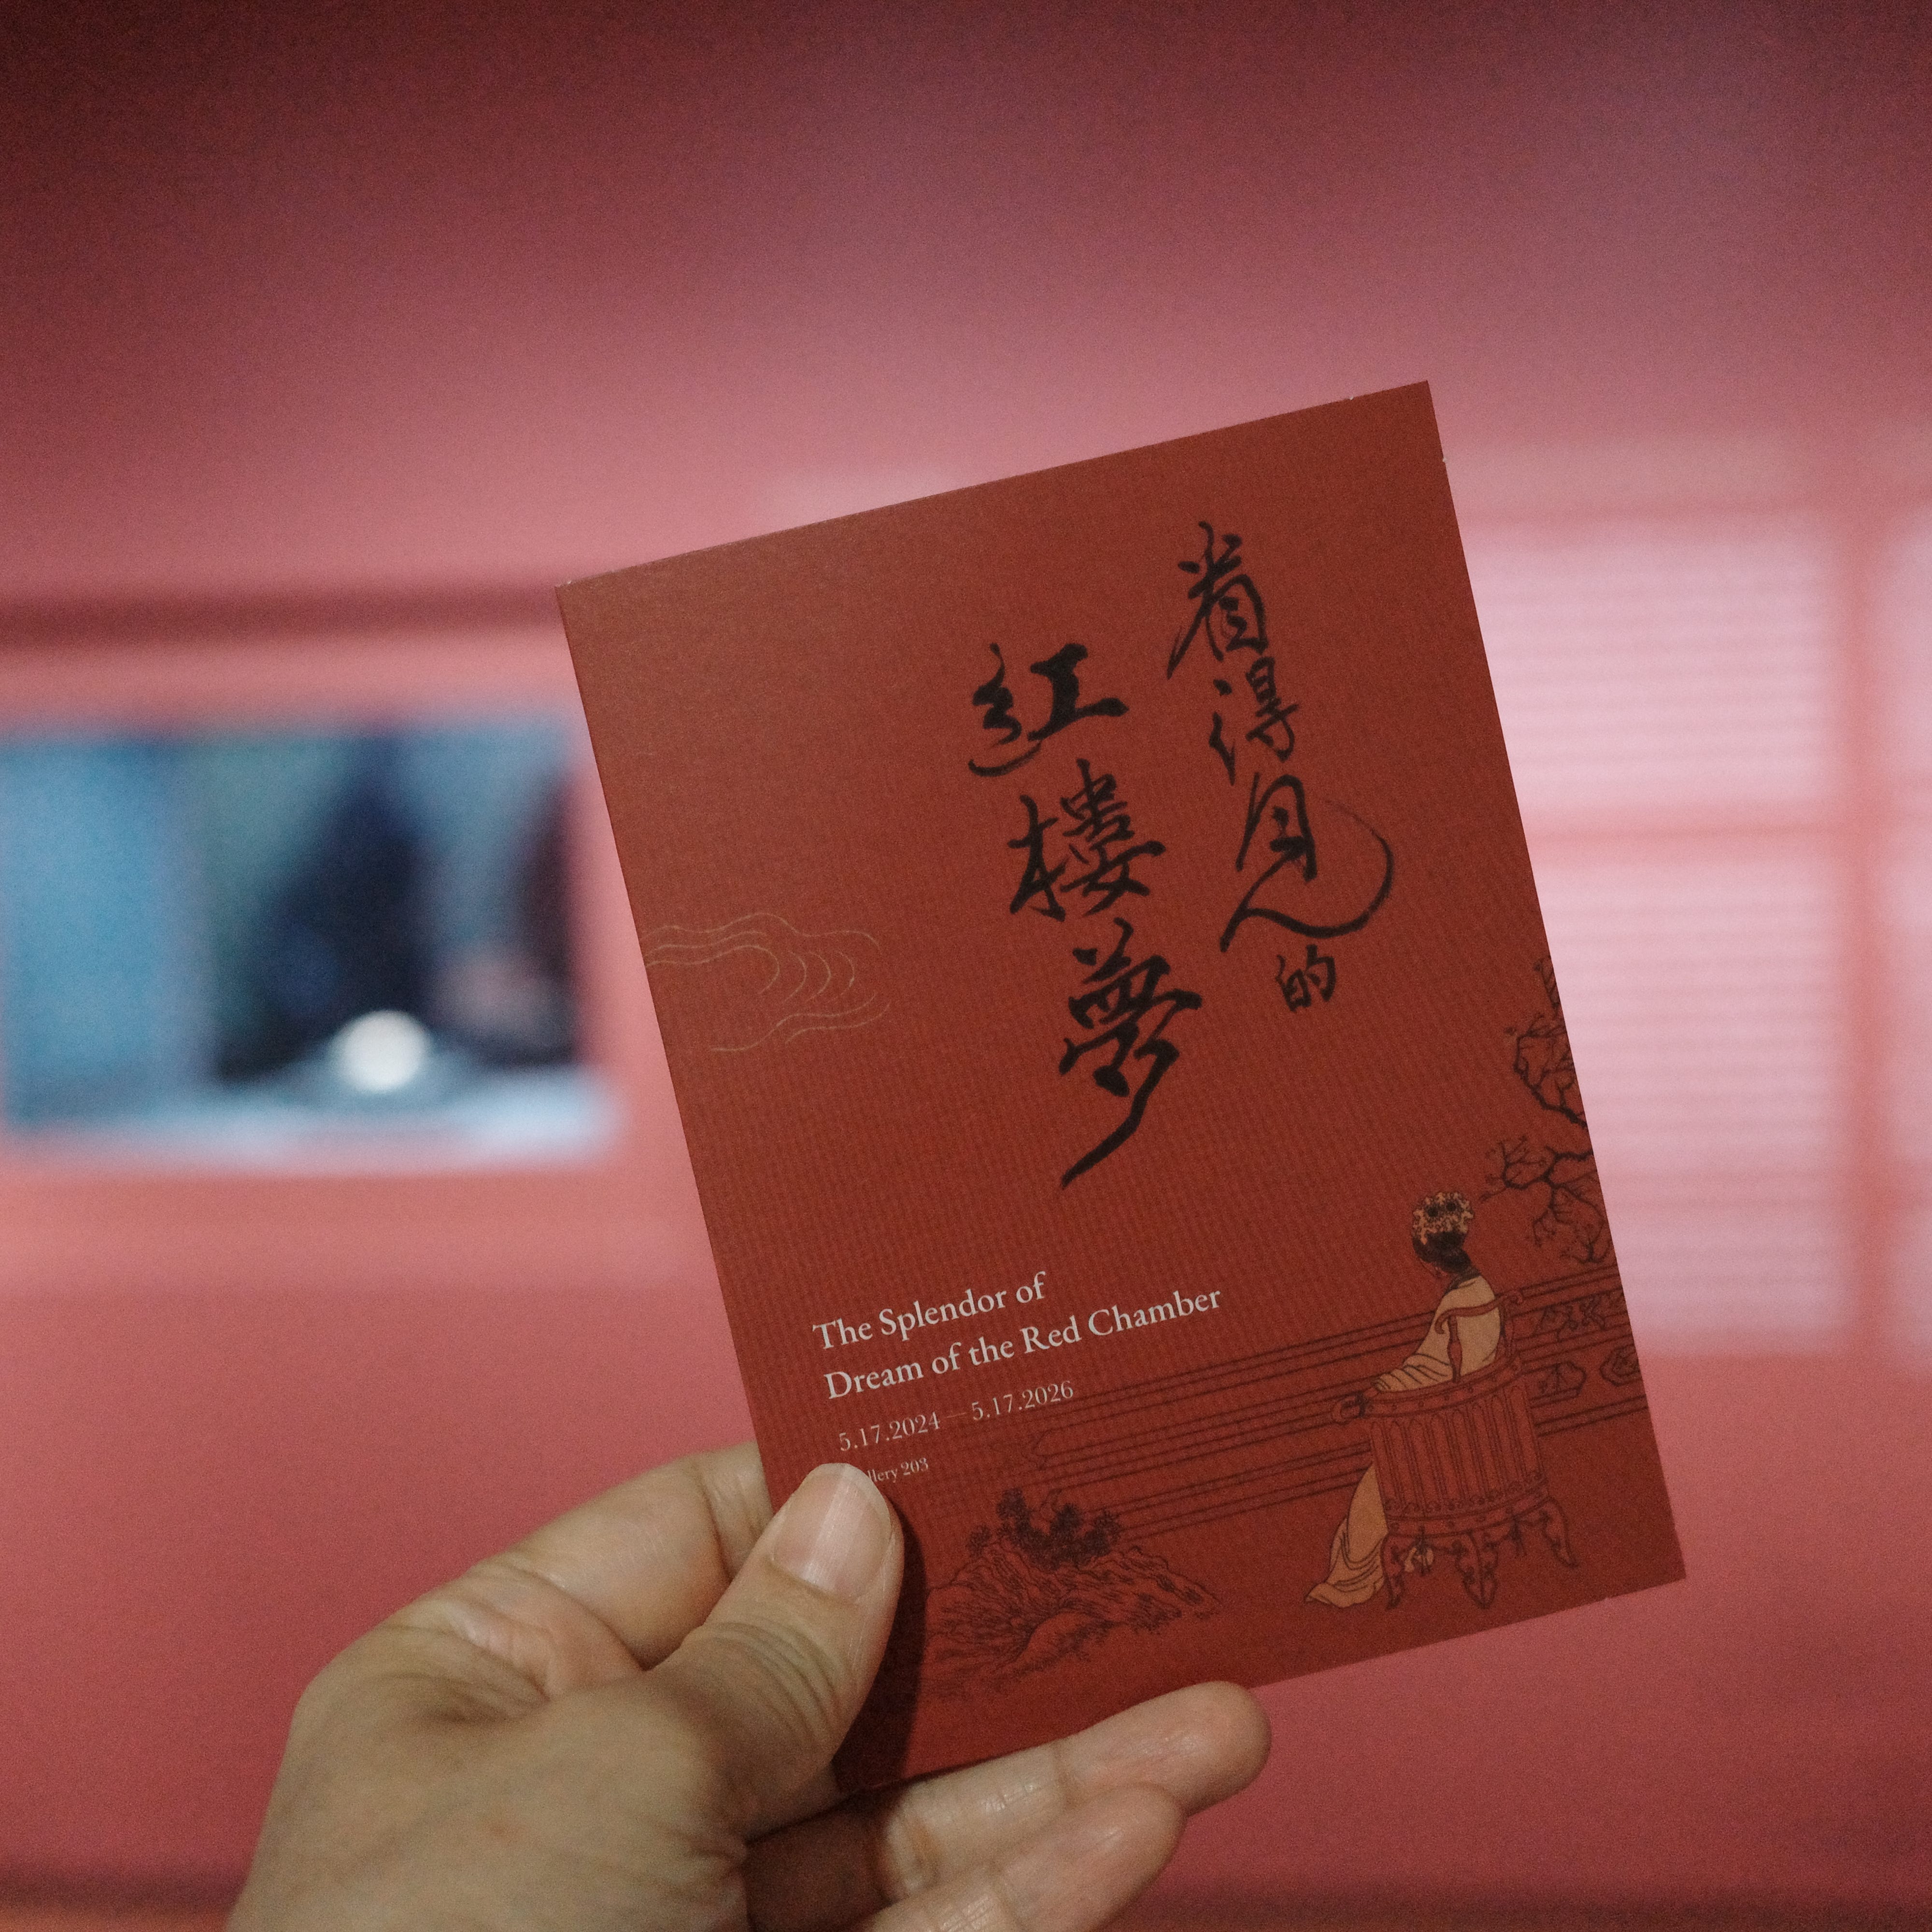 看得見的
紅樓夢
The Splendor of
Dream of the Red Chamber
5.17.2024 — 5.17.2026
203